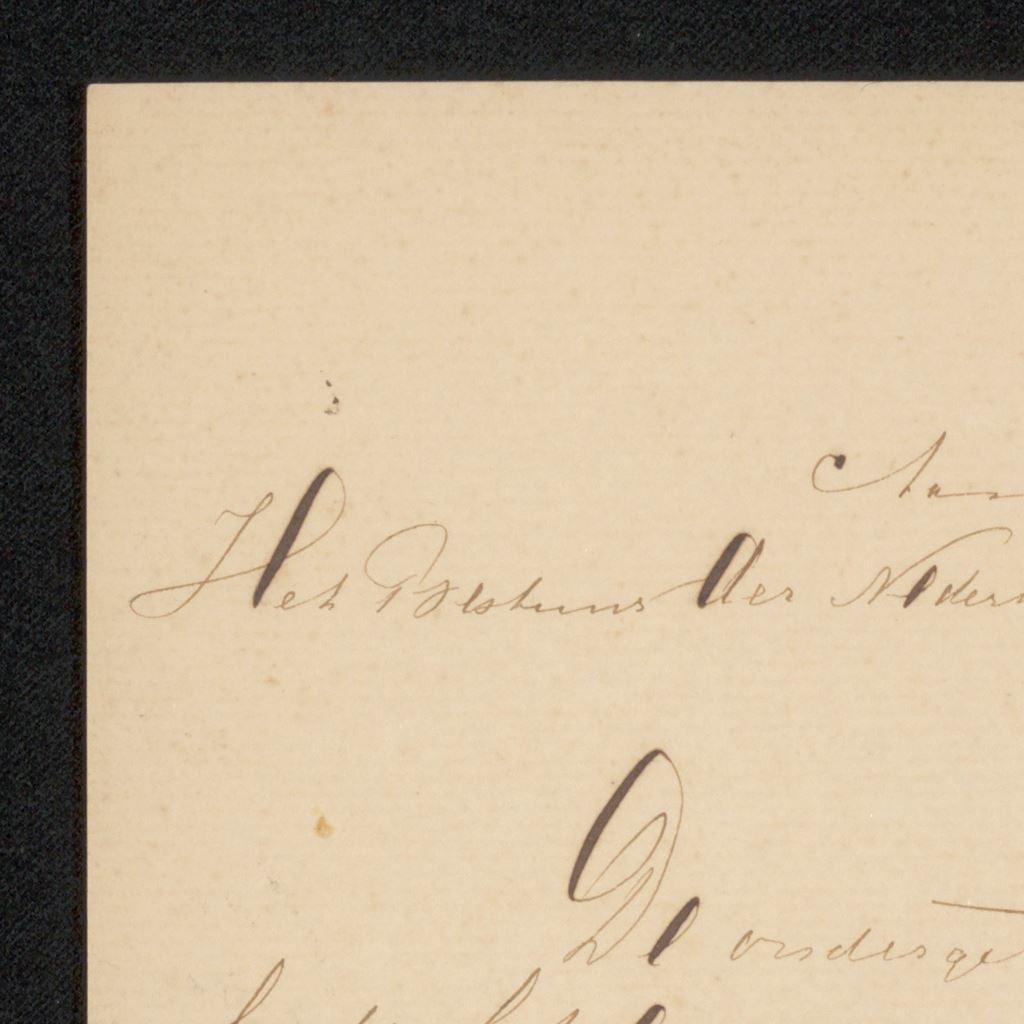 Aan
Het Bestuur der Neder
De onderge